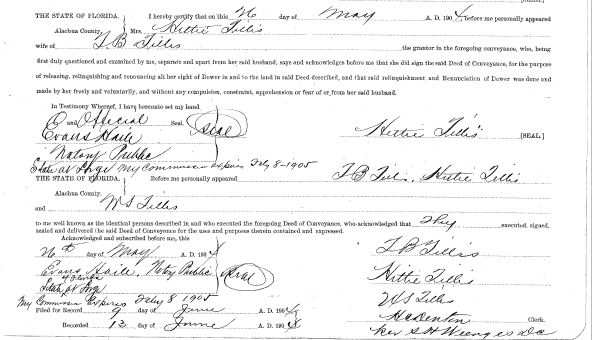 THE STATE OF FLORIDA. I hereby certify that on this 26 day of May A. D. 1904, before me personally appeared
Alachua County. Mrs. Hittie Tillis
wife of T B Tillis the grantor in the foregoing conveyance, who, being
first duly questioned and examined by me, separate and apart from her said husband, says and acknowledges before me that she did sign the said Deed of Conveyance, for the purpose
of releasing, relinquishing and renouncing all her right of Dower in and to the land in said Deed described, and that said relinquishment and Renunciation of Dower was done and
made by her freely and voluntarily, and without any compulsion, constraint, apprehension or fear of or from her said husband.
In Testimony Whereof, I have hereunto set my hand
and Official Seal. Seal Hittie Tillis [SEAL.]
Evans Haile
Notary Public
State at Large My Commission expires Feby 8-1905
THE STATE OF FLORIDA. Before me personally appeared T B Tillis, Hittie Tillis
Alachua County.
and W S Tillis
to me well known as the identical persons described in and who executed the foregoing Deed of Conveyance, who acknowledged that They executed, signed,
sealed and delivered the said Deed of Conveyance for the uses and purposes therein contained and expressed.
Acknowledged and subscribed before me, this
26th day of May A. D. 1904 T B Tillis
Evans Haile, Notary Public Seal Hittie Tillis
State at Large
My Commission Expires Feby 8 1905 W S Tillis
Filed for Record 9 day of June 1904 H C Denton Clerk.
Recorded 13 day of June A. D. 1904 Per S H Wienges D C